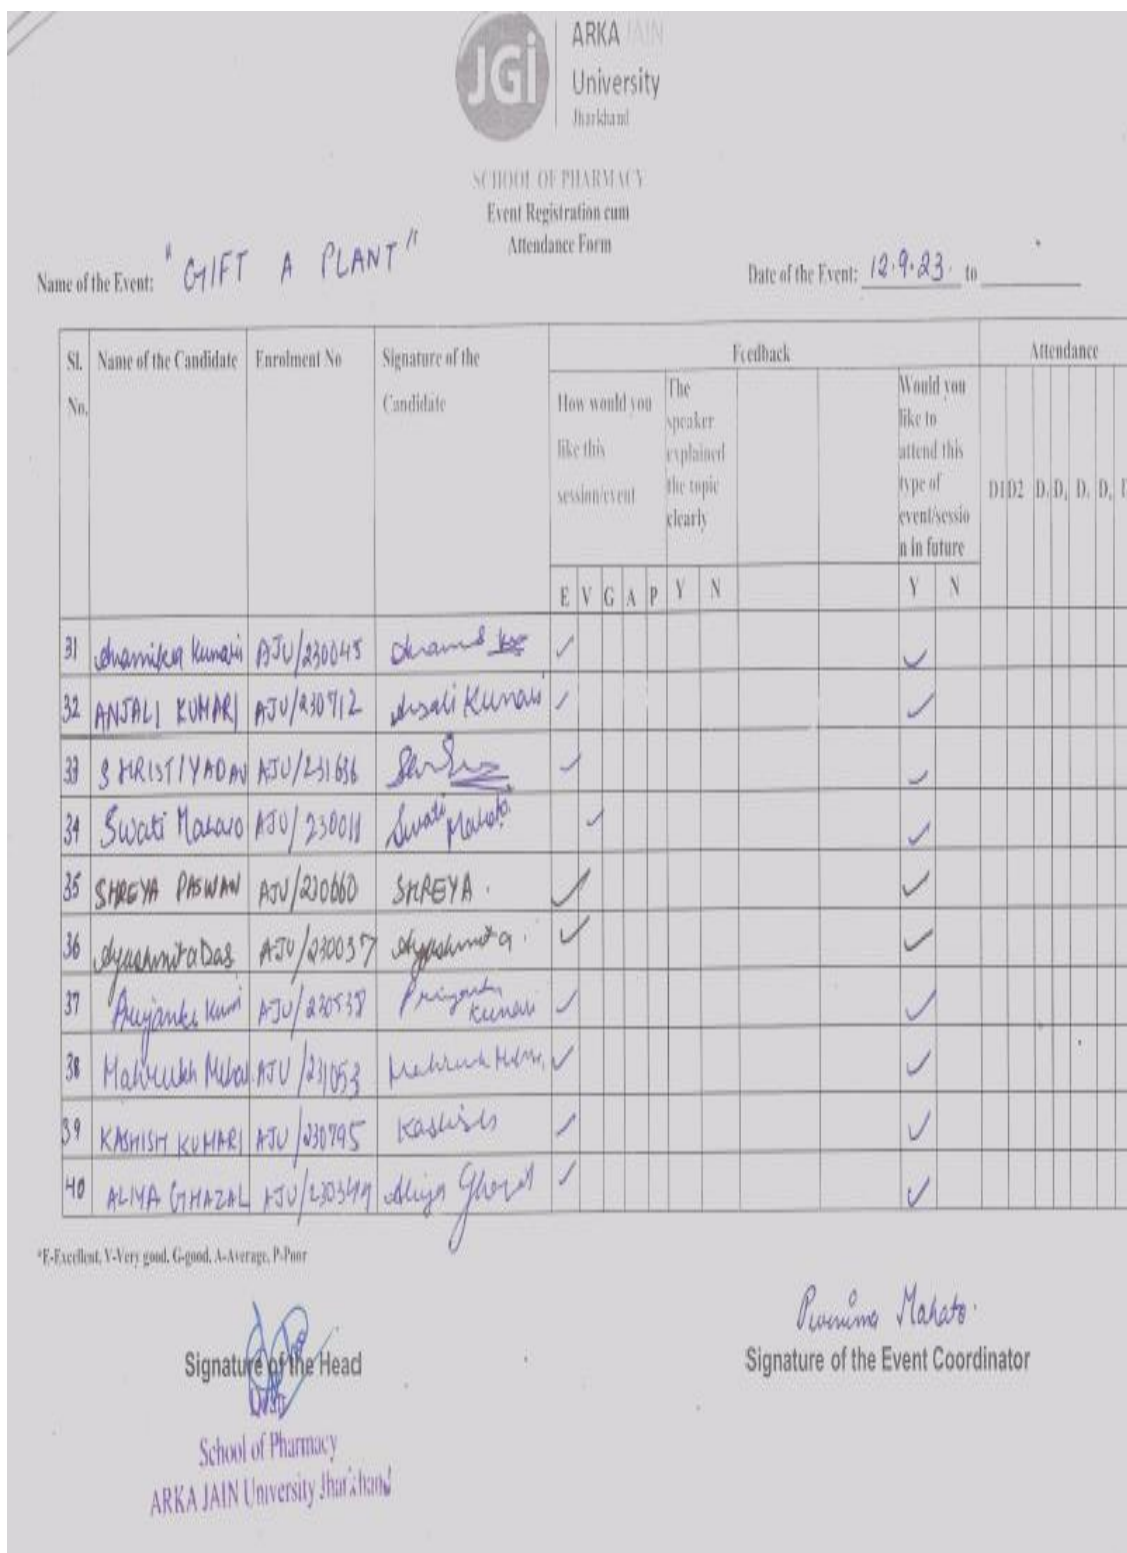 JGi
ARKA JAIN
University
Jharkhand
SCHOOL OF PHARMACY
Event Registration cum
Attendance Form
Name of the Event: "GIFT A PLANT"
Date of the Event: 12.9.23. to
Sl. No. Name of the Candidate Enrolment No Signature of the Candidate Feedback Attendance
How would you like this session/event
The speaker explained the topic clearly
Would you like to attend this type of event/session in future
D1 D2 D. D. D. D.
E V G A P Y N Y N
31 Anamika Kumari AJU/230045
32 ANJALI KUMARI AJU/230712 Anjali Kumari
33 SHRISTI YADAV AJU/231636
34 Swati Mahato AJU/230011 Swati Mahato
35 SHREYA PASWAN AJU/230660 SHREYA.
36 Ayushmita Das AJU/230037 Ayushmita.
37 Priyanka Kumari AJU/230538 Priyanka Kumari
38 Mahrukh AJU/231053 Mahrukh
39 KASHISH KUMARI AJU/230795 Kashish
40 ALIYA GHAZAL AJU/230349 Aliya Ghazal
*E-Excellent, V-Very good, G-good, A-Average, P-Poor
Purnima Mahato.
Signature of the Head
Signature of the Event Coordinator
Dean
School of Pharmacy
ARKA JAIN University Jharkhand